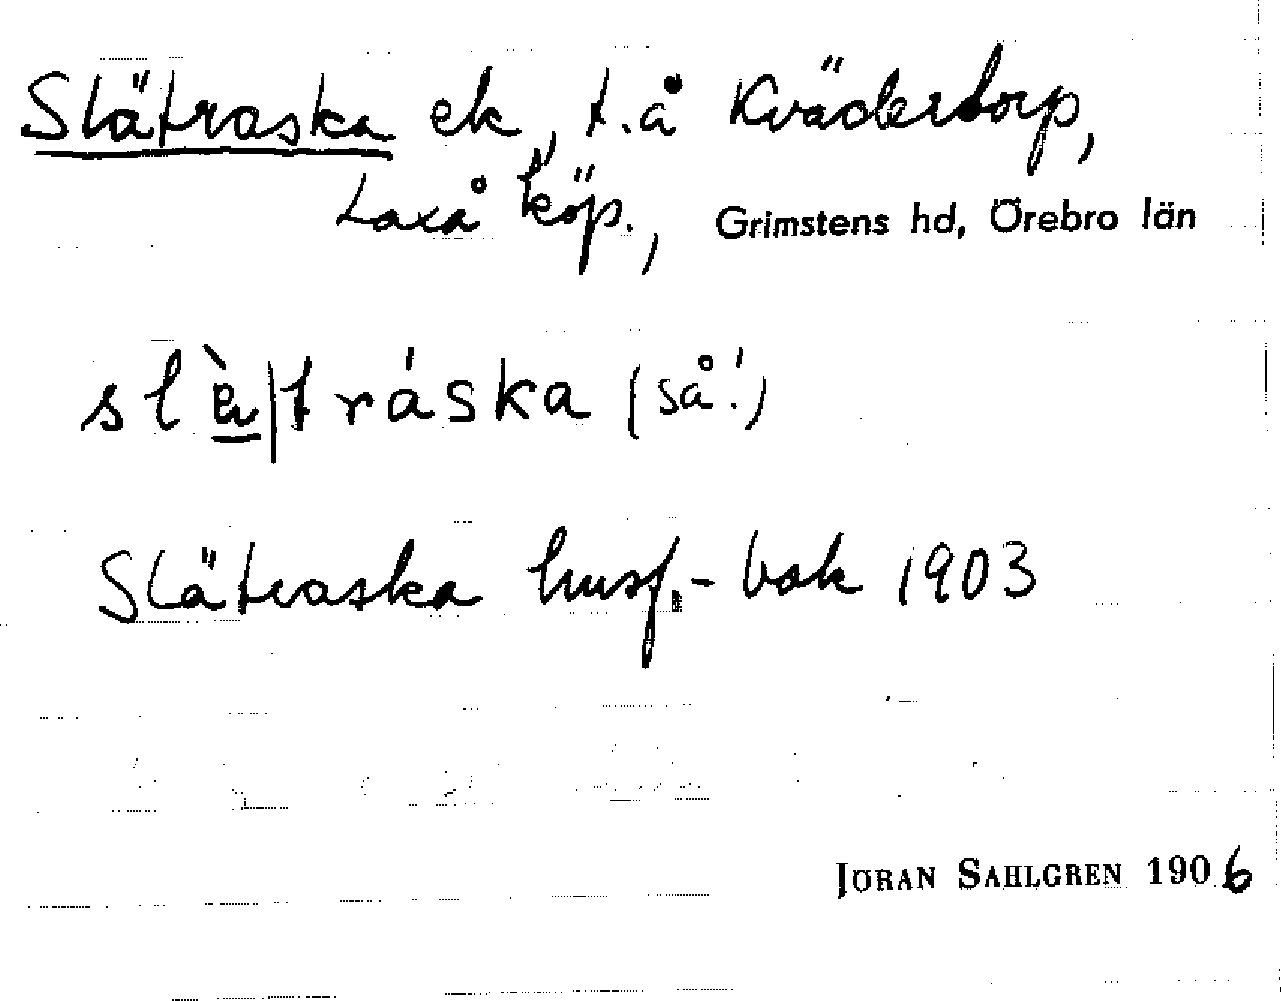 Slätraska ek, t. å Kvädertorp,
Laxå köp., Grimstens hd, Örebro län
slὲ|tráska (så!)
Slätraska husf.-bok 1903
JÖRAN SAHLGREN 1906